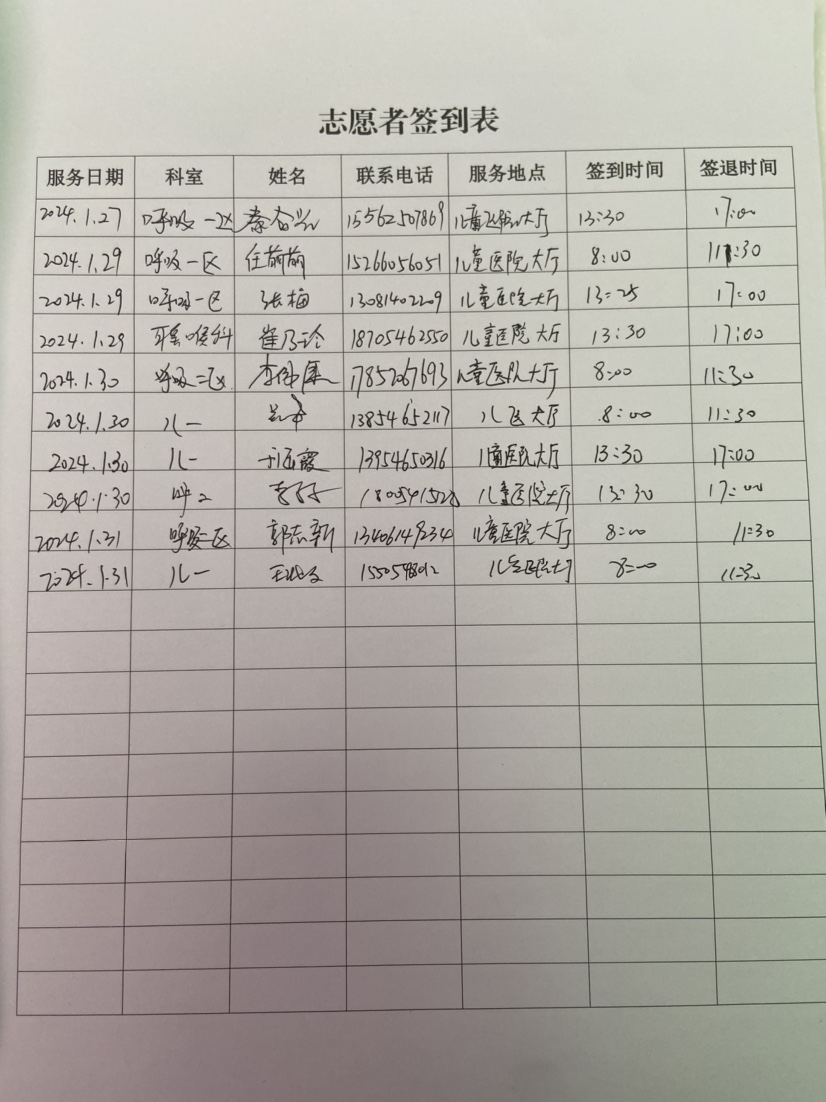 志愿者签到表
服务日期 科室 姓名 联系电话 服务地点 签到时间 签退时间
2024.1.27 呼吸一区 15562507869 儿童医院大厅 13:30 17:00
2024.1.29 呼吸一区 任前前 15266056051 儿童医院大厅 8:00 11:30
2024.1.29 呼吸一区 张梅 13081402209 儿童医院大厅 13:25 17:00
2024.1.29 耳鼻喉科 崔乃珍 18705462550 儿童医院大厅 13:30 17:00
2024.1.30 呼吸二区 李伟康 17852067693 儿童医院大厅 8:00 11:30
2024.1.30 儿一 13854652117 儿医大厅 8:00 11:30
2024.1.30 儿一 13954650316 儿童医院大厅 13:30 17:00
2024.1.30 呼2 儿童医院大厅 13:30 17:00
2024.1.31 呼吸二区 郭志新 13406149234 儿童医院大厅 8:00 11:30
2024.1.31 儿一 儿童医院大厅 8:00 11:30